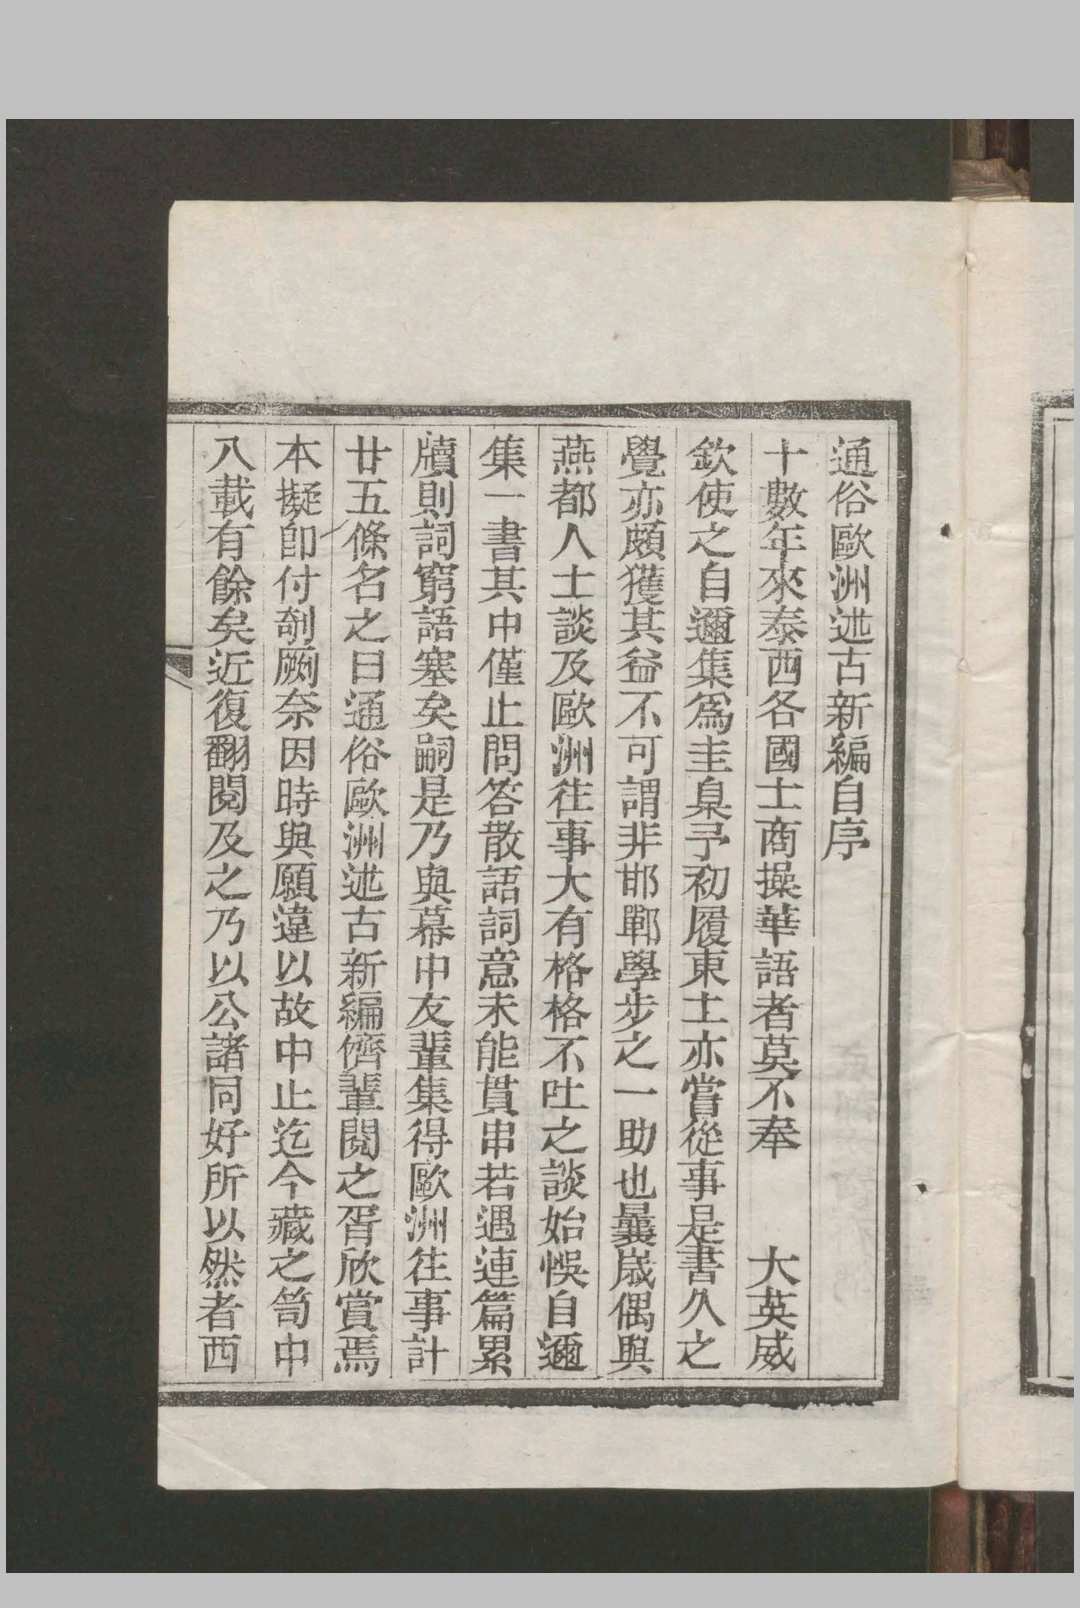 通俗歐洲述古新編自序
十數年來泰西各國士商操華語者莫不奉　　大英威
欽使之自邇集爲圭臬予初履東土亦嘗從事是書久之
覺亦頗獲其益不可謂非邯鄲學步之一助也曩歲偶與
燕都人士談及歐洲往事大有格格不吐之談始悞自邇
集一書其中僅止問答散語詞意未能貫串若遇連篇累
牘則詞窮語塞矣嗣是乃與幕中友輩集得歐洲往事計
廿五條名之曰通俗歐洲述古新編儕輩閱之胥欣賞焉
本擬卽付剞劂奈因時與願違以故中止迄今藏之笥中
八載有餘矣近復翻閱及之乃以公諸同好所以然者西